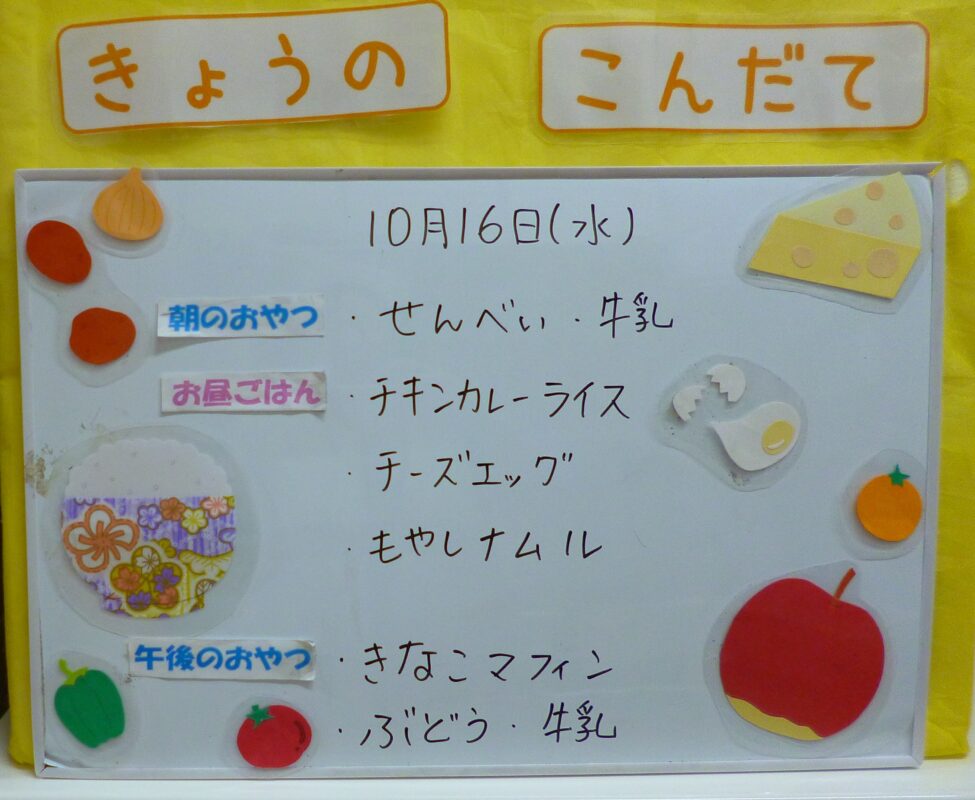 きょうの こんだて
10月16日(水)
朝のおやつ ・せんべい・牛乳
お昼ごはん ・チキンカレーライス
・チーズエッグ
・もやしナムル
午後のおやつ ・きなこマフィン
・ぶどう・牛乳